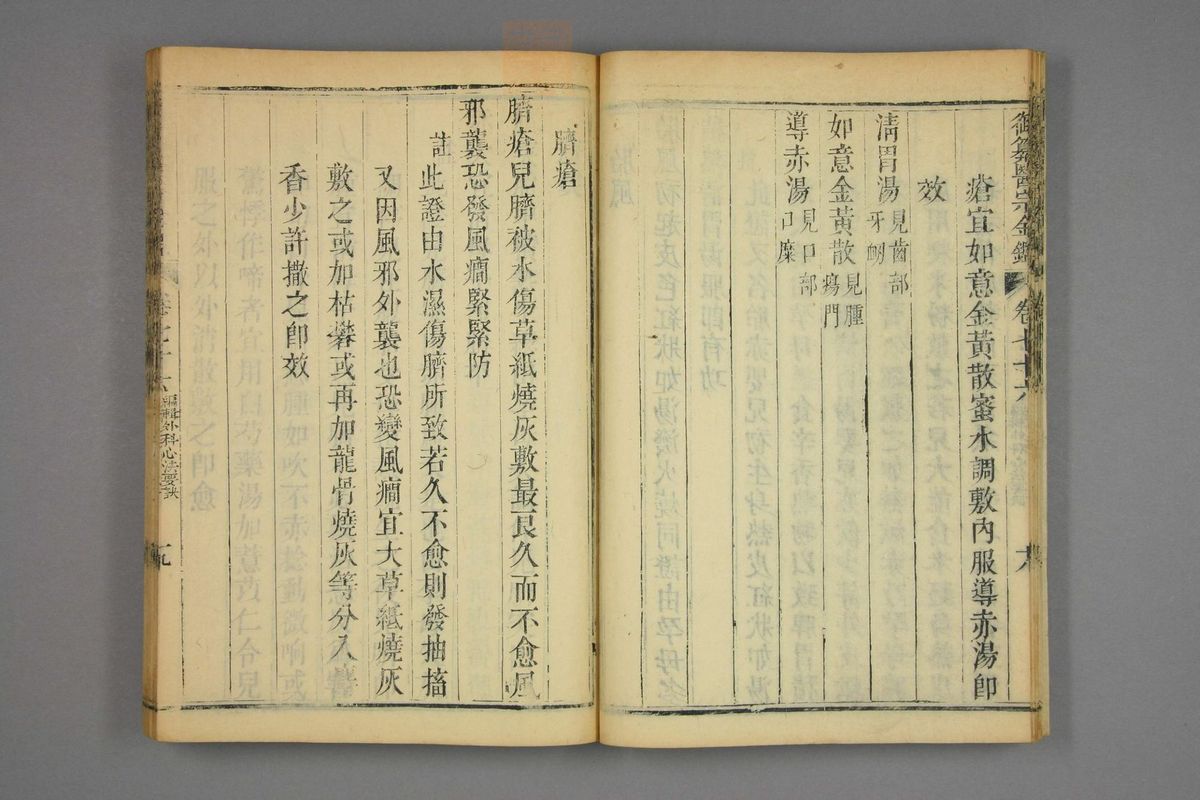 御纂醫宗金鑑 卷七十六
瘡宜如意金黃散蜜水調敷內服導赤湯卽
效
清胃湯 見齒部牙衄
如意金黃散 見腫瘍門
導赤湯 見口部口糜
臍瘡
臍瘡兒臍被水傷草紙燒灰敷最良久而不愈風
邪襲恐發風癎緊緊防
註此證由水濕傷臍所致若久不愈則發抽搐
又因風邪外襲也恐變風癎宜大草紙燒灰
敷之或加枯礬或再加龍骨燒灰等分入麝
香少許撒之卽效
編輯外科心法要訣